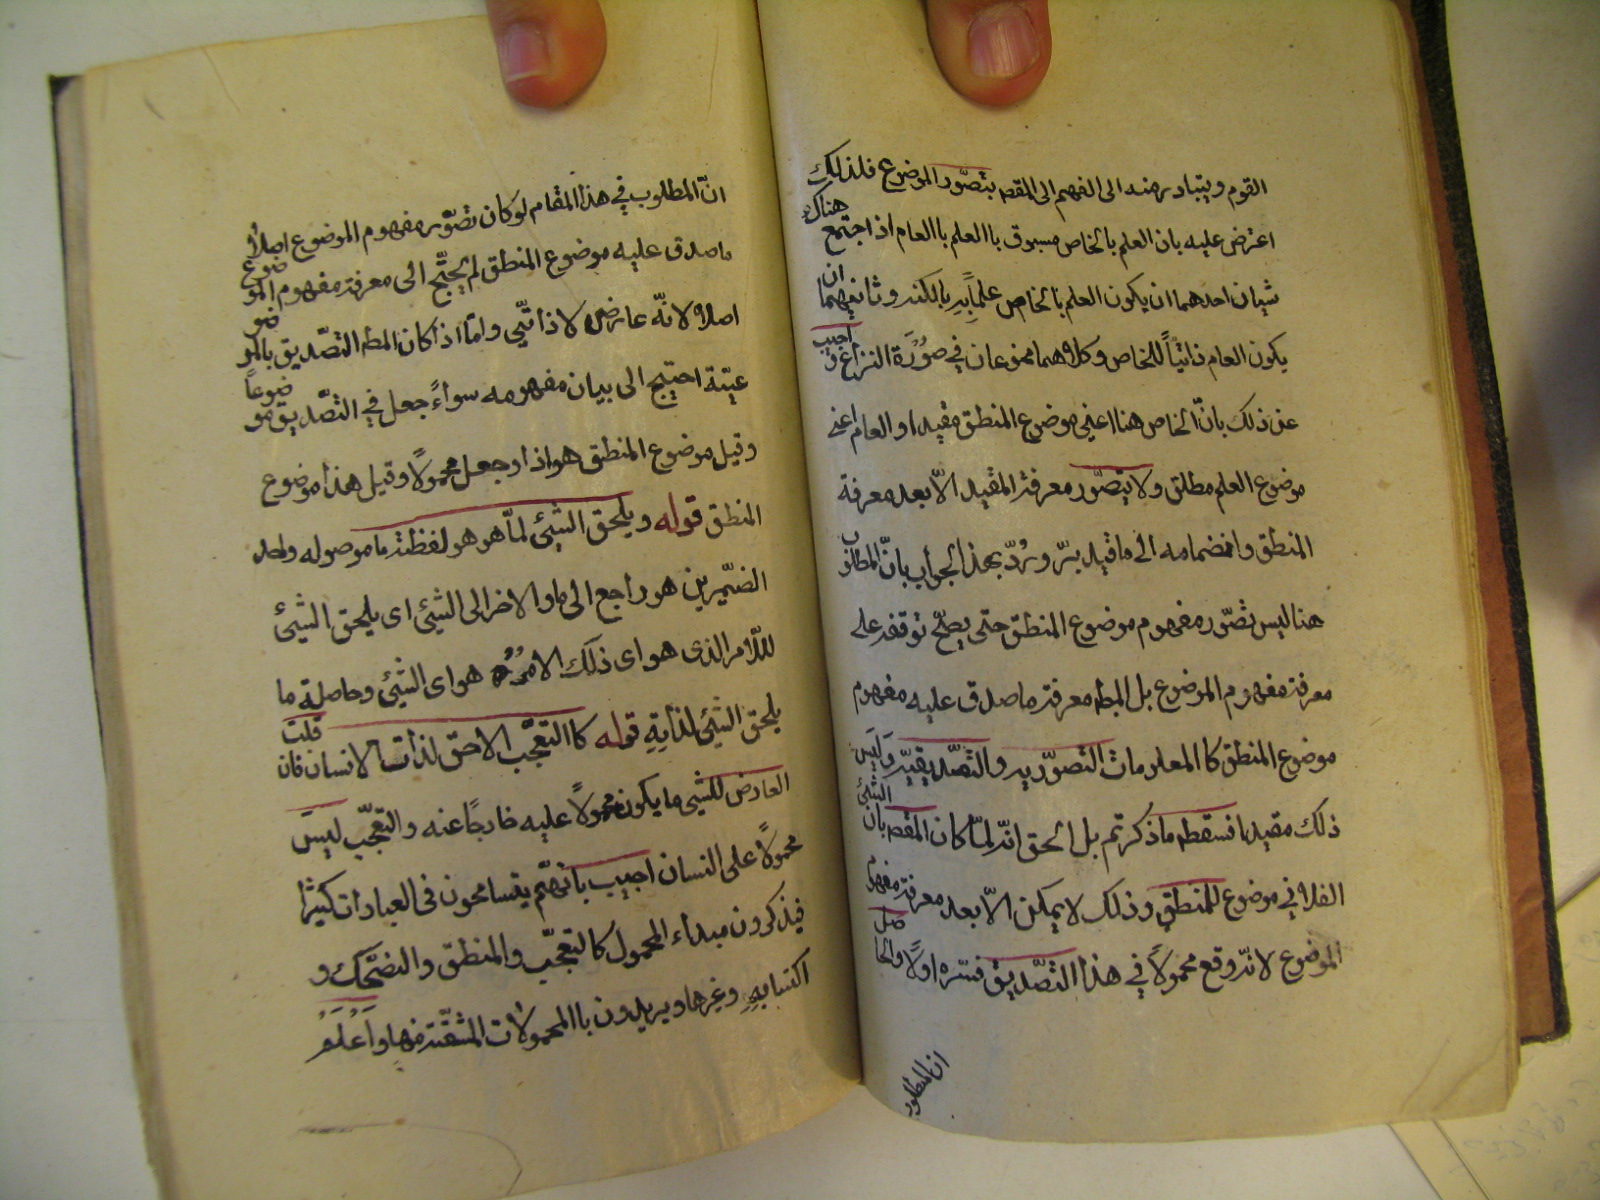 القوم ويتبادر منه الى الفهم الى المقصه بتصوّر الموضوع فلذلك
اعترض عليه بان العلم بالخاص مسبوق باالعلم باالعام اذا اجتمع هناك
شيان احدهما ان يكون العلم بالخاص علماً بالكنه وثانيهما ان
يكون العام ذاتيّاً للخاص وكلاهما ممنوعان في صورة النزاع و اجيب
عن ذلك بانّ الخاص هنا اعني موضوع المنطق مقيد او العام اعني
موضوع العلم مطلق ولا يتصوّر معرفة المقيد الاّ بعد معرفة
المنطق وانضمامه الى ما قيد به ورُدّ بهذا الجواب بانّ المطلوب
هنا ليس تصّور مفهوم موضوع المنطق حتى يصحّ توقفه على
معرفة مفهوم الموضوع بل المط معرفة ما صدق عليه مفهوم
موضوع المنطق كاالمعلومات التصوّريه والتصّديقيّه وَلَيسَ
ذلك مقيدا فسقط ما ذكرتم بل الحق انّه لمّا كان المقصه بان الشئ
الفلاني موضوع للمنطق وذلك لا يمكن الاّ بعد معرفة مفهوم
الموضوع لانّه وقع محمولاً في هذا التصّديق فسّره اولاً والحاصل
ان المطلوب
انّ المطلوب في هذا المقام لو كان تصّور مفهوم الموضوع اصلاً
ماصدق عليه موضوع المنطق لم يحتّج الى معرفة مفهوم الموضوع
اصلاً لانّه عارض لا ذاتّي وامّا اذا كان المط التصّديق بالموضو
عيّة احتيج الى بيان مفهومه سواءً جعل في التصّديق موضوعاً
وقيل موضوع المنطق هو اذا وجعل محمولاً وقيل هذا موضوع
المنطق قوله ويلحق الشئ لماّ هو هو لفظة ما موصوله واحد
الضّميرين هو راجع الى ما والاخر الى الشئ اى يلحق الشئ
للاّمر الذى هو اى ذلك الامر هو اى الشئ وحاصلة ما
يلحق الشئ لذاتِهِ قوله كاالتعّجب الاحق لذات الانسان فان قلت
العارض للشئ ما يكون محمولاً عليه خارجًا عنه والتعّجب ليسَ
محمولاً على النسان اجيب بانهّم يتسامحون فى العبادات كثيرًا
فيذكرون مبداء المحمول كالتعجّب والمنطق والضّحك و
اكتسابهِ وغيرها ويريدون باالمحمولات المشقّتة منها وَاَعْلَمْ